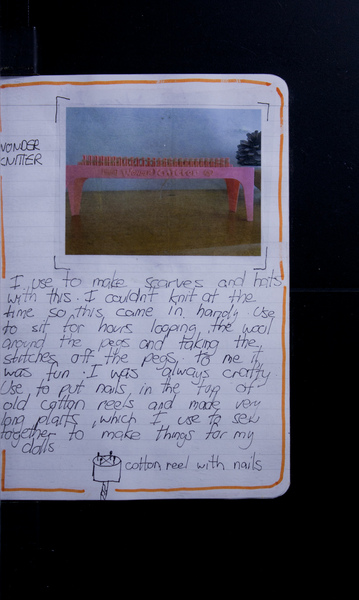 WONDER
KNITTER
I use to make scarves and hats
with this. I couldn't knit at the
time so this came in handy. Use
to sit for hours looping the wool
around the pegs and taking the
stitches off the pegs, to me it
was fun. I was always crafty.
Use to put nails in the top of
old cotton reels and made very
long plaits, which I use to sew
together to make things for my
dolls
cotton reel with nails